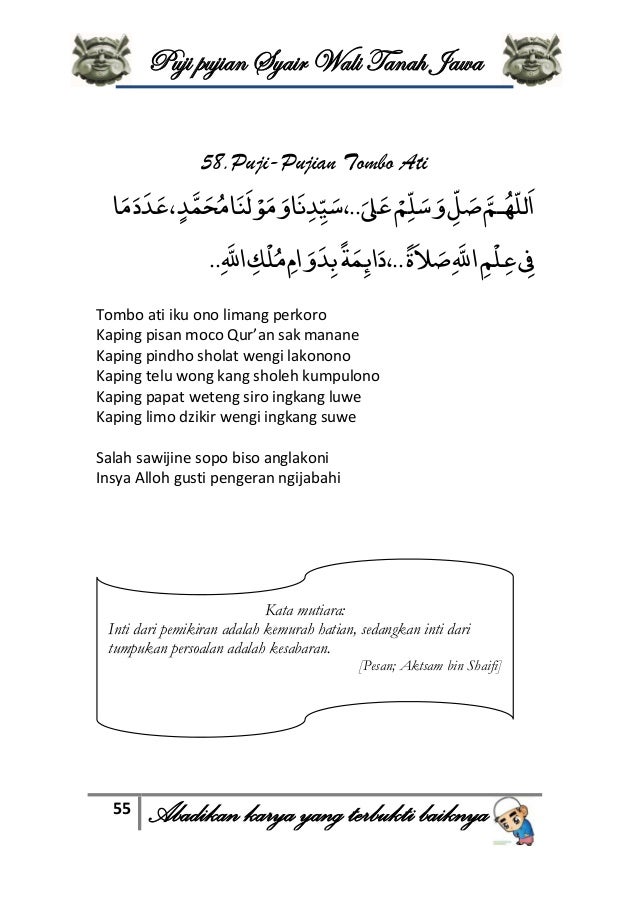 Puji pujian Syair Wali Tanah Jawa
58.Puji-Pujian Tombo Ati
اَللّٰهُـمَّ صَلِّ وَ سَلِّمْ عَلَىٰ..،سَيِّدِنَاوَ مَوْلَنَامُحَمَّدٍ،عَدَدَمَا
فِى عِلْمِ اللَّهِ صَلاَةً..،دَائِمَةً بِدَوَ امِ مُلْكِ اللَّهِ..
Tombo ati iku ono limang perkoro
Kaping pisan moco Qur’an sak manane
Kaping pindho sholat wengi lakonono
Kaping telu wong kang sholeh kumpulono
Kaping papat weteng siro ingkang luwe
Kaping limo dzikir wengi ingkang suwe
Salah sawijine sopo biso anglakoni
Insya Alloh gusti pengeran ngijabahi
Kata mutiara:
Inti dari pemikiran adalah kemurah hatian, sedangkan inti dari
tumpukan persoalan adalah kesabaran.
[Pesan; Aktsam bin Shaifi]
55 Abadikan karya yang terbukti baiknya